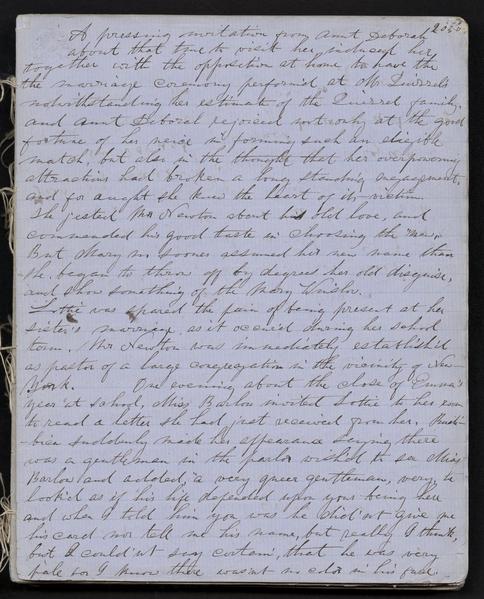 205.
A pressing invitation from Aunt Deborah
about that time to visit her, induced her,
together with the opposition at home, to have the
the marriage ceremony performed at Mr
notwithstanding her estimate of the family,
and Aunt Deborah rejoiced not only at the good
fortune of her neice in forming such an eligible
match, but also in the thought that her overpowering
attractions had broken a long standing engagement,
and for aught she knew the heart of its victim.
She jested Mr Newton about his old love, and
commended his good taste in choosing the new.
But Mary no sooner assumed her new name than
she began to throw off by degrees her old disguise,
and show something of the Mary
Lottie was spared the pain of being present at her
sister's marriage as it occur'd during her school
term. Mr Newton was immediately establish'd
as pastor of a large congregation in the vicinity of New
York. One evening about the close of Emma's
year at school, Miss Barlow invited Lottie to her room
to read a letter she had just received from her.
suddenly made her appearance saying there
was a gentleman in the parlor wished to see Miss
Barlow and added, a very queer gentleman, very, he
look'd as if his life depended upon your being here
and when I told him you was he did'nt give me
his card nor tell me his name, but really I think,
but I could'nt say certain, that he was very
pale for I know there wasnt no color in his face.